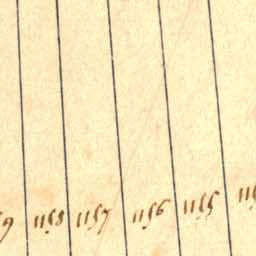 1158 1157 1156 1155